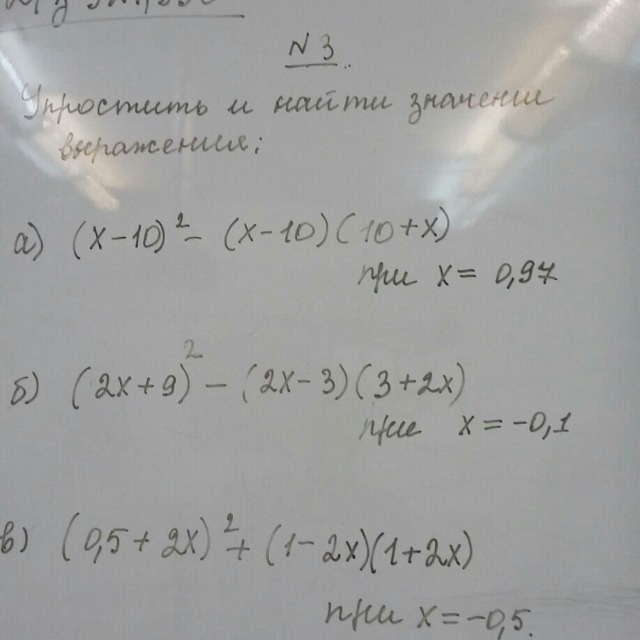 N3.
Упростить и найти значении
выражения;
а) (x-10)² - (x-10)(10+x)
при x = 0,97
б) (2x+9)² - (2x-3)(3+2x)
при x = -0,1
в) (0,5+2x)² + (1-2x)(1+2x)
при x = -0,5.